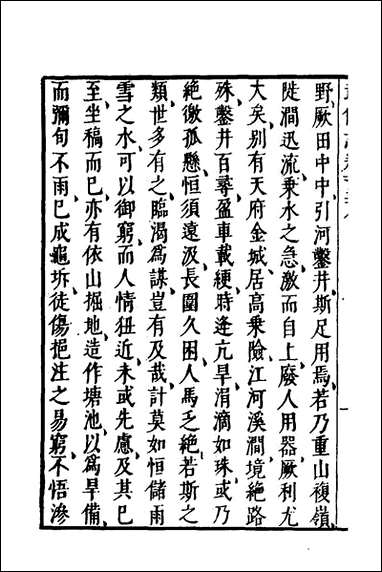 野厥田中中引河鑿井斯足用焉若乃重山複嶺
陡澗迅流乗水之急激而自上廢人用器厥利尤
大矣别有天府金城居髙乗險江河溪澗境絶路
殊鑿井百尋盈車載綆時逢亢旱涓滴如珠或乃
絶徼孤懸恒須遠汲長圍久困人馬乏絶若斯之
類世多有之臨渇為謀豈有及哉計莫如恒儲雨
雪之水可以御窮而人情狃近未或先慮及其已
至坐槁而已亦有依山掘地造作塘池以為旱備
而彌旬不雨已成龜坼徒傷挹注之易窮不悟滲